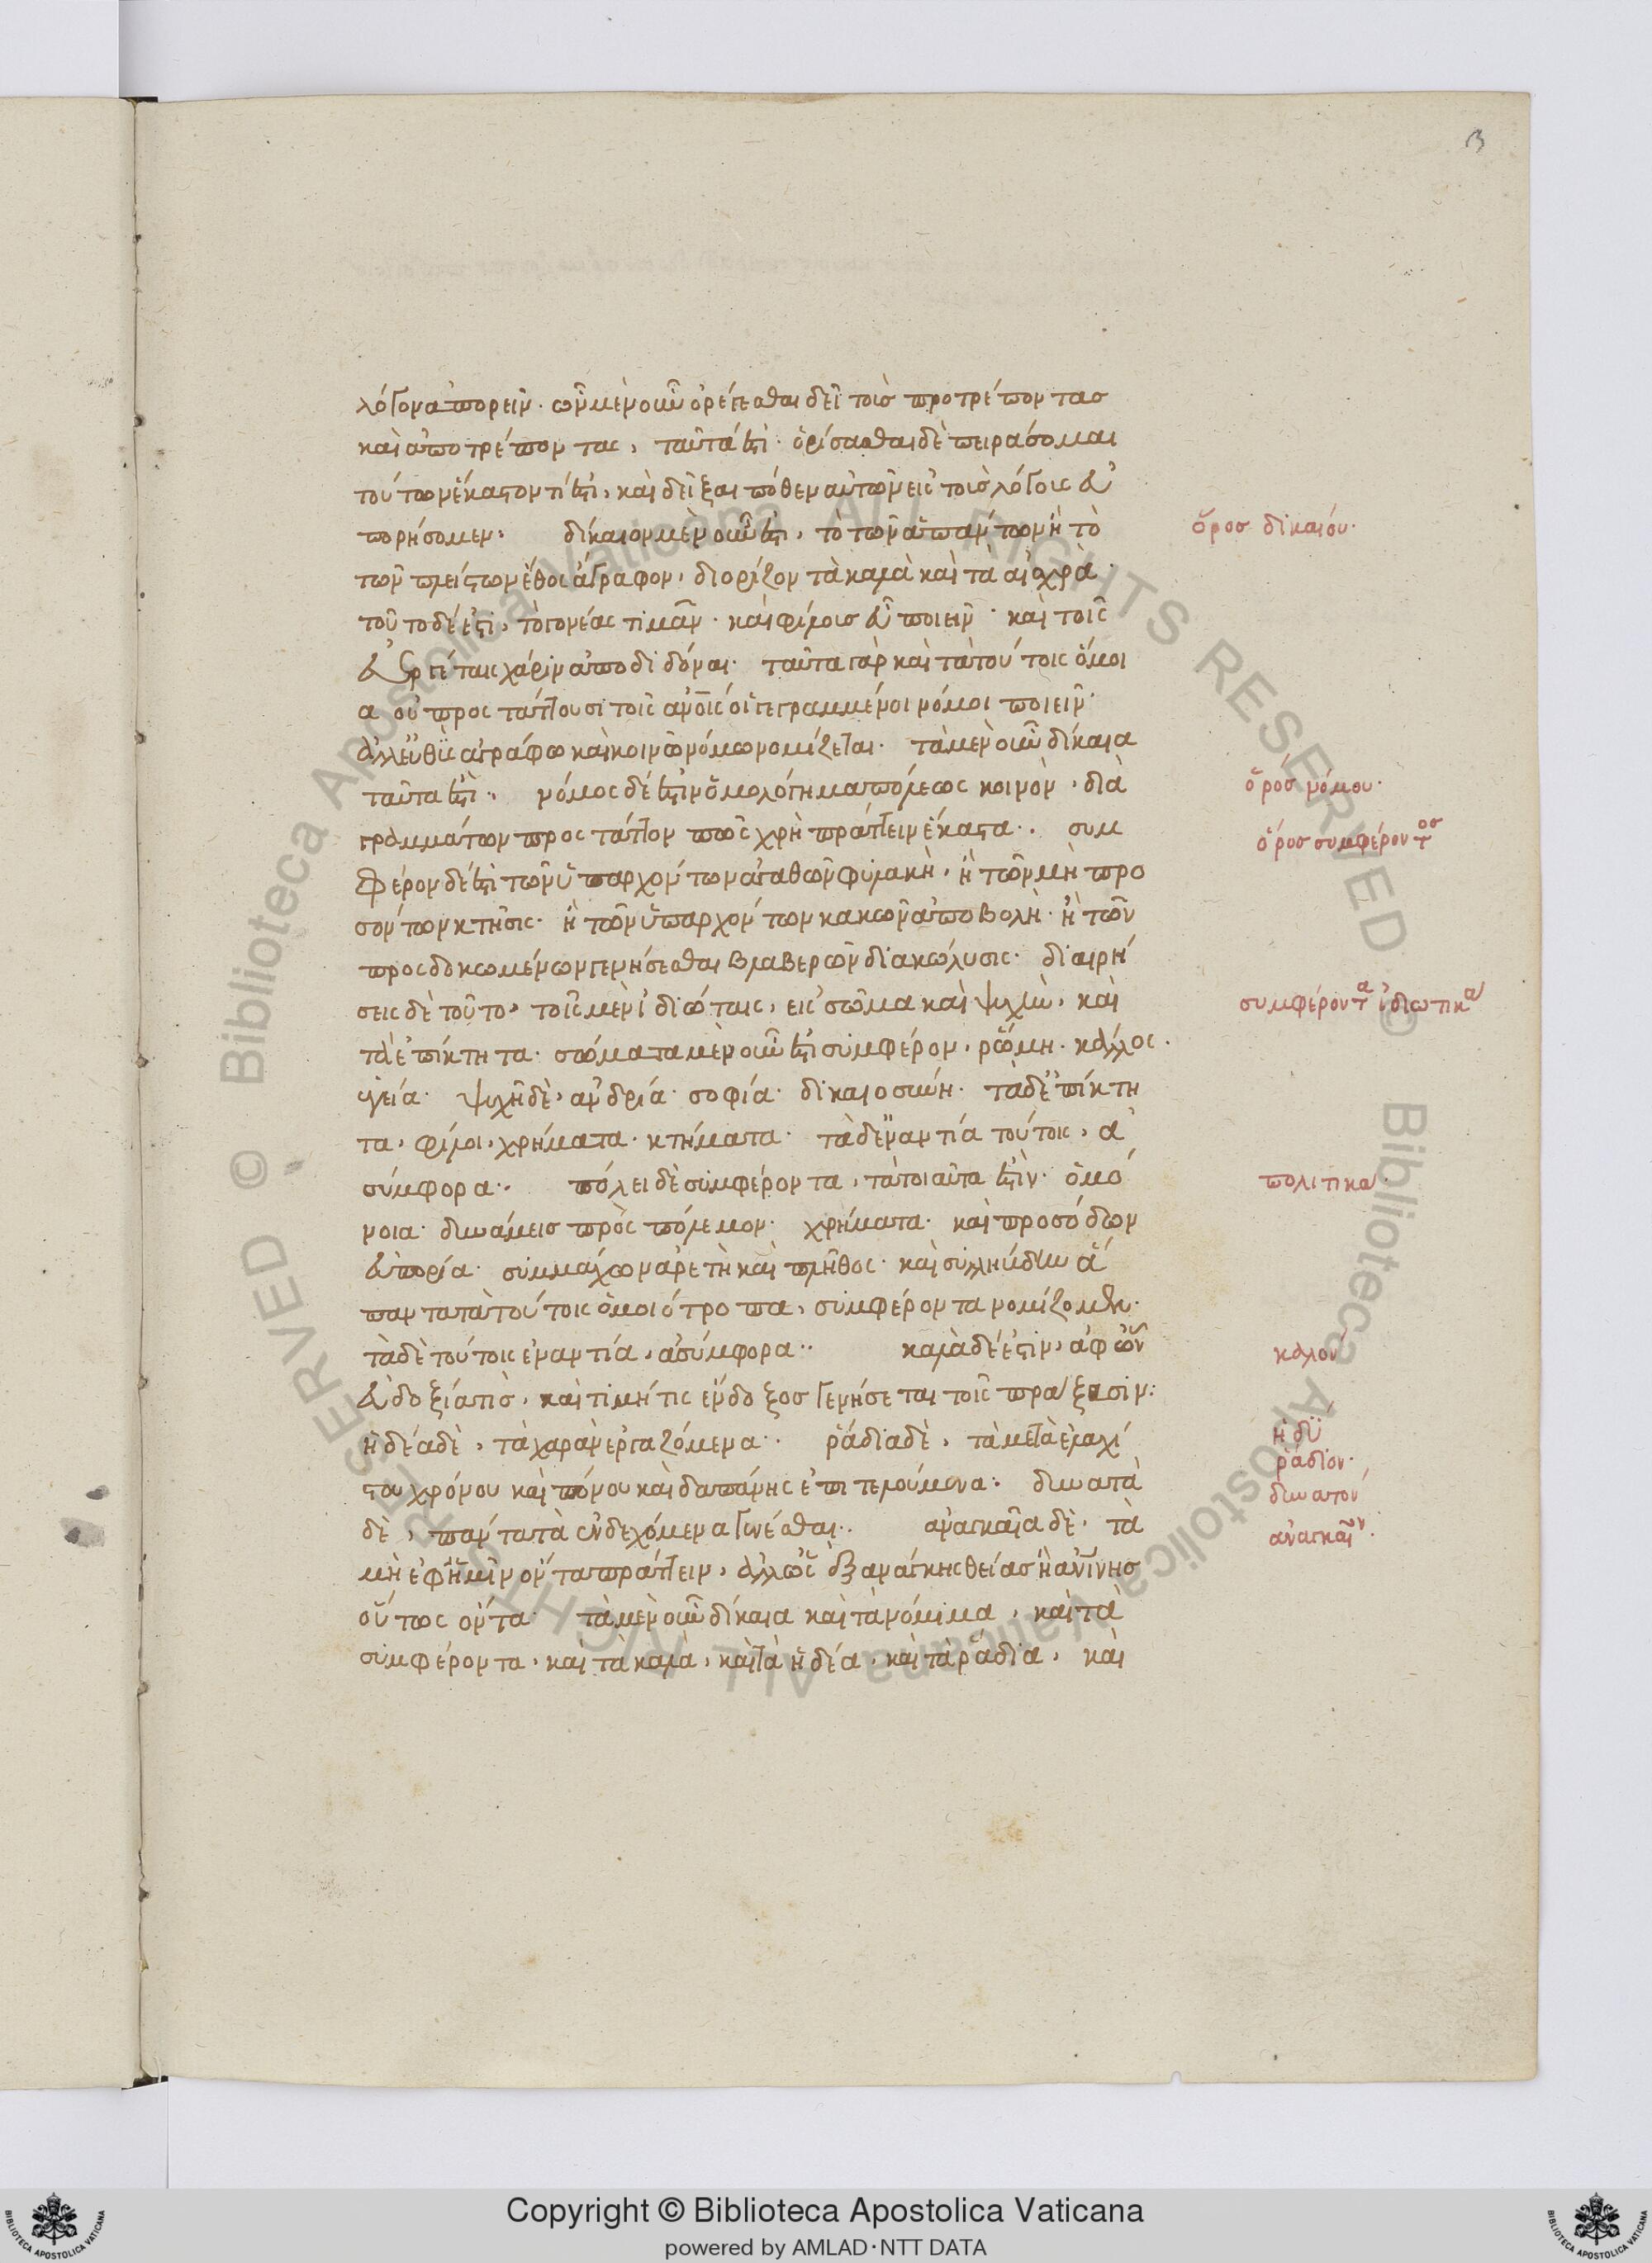 β
λόγον ἀπορεῖν. ὧν μὲν οὖν ὀρέγεσθαι δεῖ τοὺς προτρέποντας
καὶ ἀποτρέποντας, ταῦτά ἐστι. ὁρίσασθαι δὲ πειράσομαι
τούτων ἕκαστον τί ἐστι, καὶ δεῖξαι πόθεν αὐτῶν εἰς τοὺς λόγους εὐ
πορήσομεν. δίκαιον μὲν οὖν ἐστι, τὸ τῶν ἁπάντων ἢ τὸ
τῶν πλείστων ἔθος ἄγραφον, διορίζον τὰ καλὰ καὶ τὰ αἰσχρά.
τοῦτο δέ ἐστι, τὸ γονέας τιμᾶν. καὶ φίλους εὖ ποιεῖν. καὶ τοῖς
εὐεργέταις χάριν ἀποδιδόναι. ταῦτα γὰρ καὶ τὰ τούτοις ὅμοι
α οὐ προστάττουσι τοῖς ἀνοις οἱ γεγραμμένοι νόμοι ποιεῖν.
ἀλλ' εὐθὺς ἀγράφω καὶ κοινῶ νόμω νομίζεται. τὰ μὲν οὖν δίκαια
ταῦτα ἐστι. νόμος δέ ἐστιν ὁμολόγημα πόλεως κοινὸν, διὰ
γραμμάτων προστάττον πῶς χρὴ πράττειν ἕκαστα. συμ
φέρον δέ ἐστι τῶν ὑπαρχόντων ἀγαθῶν φυλακὴ, ἢ τῶν μὴ προ
σόντων κτῆσις. ἢ τῶν ὑπαρχόντων κακῶν ἀποβολὴ. ἢ τῶν
προσδοκωμένων γενήσεσθαι βλαβερῶν διακώλυσις. διαιρή
σεις δὲ τοῦτο, τοῖς μὲν ἰδιώταις, εἰς σῶμα καὶ ψυχὴν, καὶ
τὰ ἐπίκτητα. σώματα μὲν οὖν ἐστι συμφέρον, ῥώμη. κάλλος.
ὑγεία. ψυχῆ δὲ, ἀνδρία. σοφία. δικαιοσύνη. τὰ δ' ἐπίκτη
τα, φίλοι, χρήματα. κτήματα. τὰ δ' ἐναντία τούτοις, ἀ
σύμφορα. πόλει δὲ συμφέροντα, τὰ τοιαῦτα ἐστὶν. ὁμό
νοια. δυνάμεις πρὸς πόλεμον. χρήματα. καὶ προσόδων
εὐπορία. συμμάχων ἀρετὴ καὶ πλῆθος. καὶ συλλήβδην ἅ
παντα τὰ τούτοις ὁμοιότροπα, συμφέροντα νομίζομεν.
τὰ δὲ τούτοις ἐναντία, ἀσύμφορα. καλὰ δέ ἐστιν, ἀφ' ὧν
εὐδοξία τις, καὶ τιμή τις ἔνδοξος γενήσεται τοῖς πράξασιν:
ἡδέα δὲ, τὰ χαρὰν ἐργαζόμενα. ῥάδια δὲ, τὰ μετὰ ἐλαχί
στου χρόνου καὶ πόνου καὶ δαπάνης ἐπιτελούμενα. δυνατὰ
δὲ, πάντα τὰ ἐνδεχόμενα γενέσθαι. ἀναγκαῖα δὲ, τὰ
μὴ ἐφ' ἡμῖν ὄντα πράττειν, ἀλλ' ὡς ἐξ ἀνάγκης θείας ἢ ἀνίνης
οὕτως ὄντα. τὰ μὲν οὖν δίκαια καὶ τὰ νόμιμα, καὶ τὰ
συμφέροντα, καὶ τὰ καλὰ, καὶ τὰ ἡδέα, καὶ τὰ ῥάδια, καὶ
ὅρος δικαίου.
ὅρος νόμου.
ὅρος συμφέροντος
συμφέροντα ἰδιωτικὰ
πολιτικα
καλον
ἡδὺ
ῥάδιον.
δυνατον
ἀναγκαῖον.
© Biblioteca Apostolica Vaticana ALL RIGHTS RESERVED
© Biblioteca Apostolica Vaticana ALL RIGHTS RESERVED
Copyright © Biblioteca Apostolica Vaticana
powered by AMLAD·NTT DATA
BIBLIOTECA APOSTOLICA VATICANA
BIBLIOTECA APOSTOLICA VATICANA